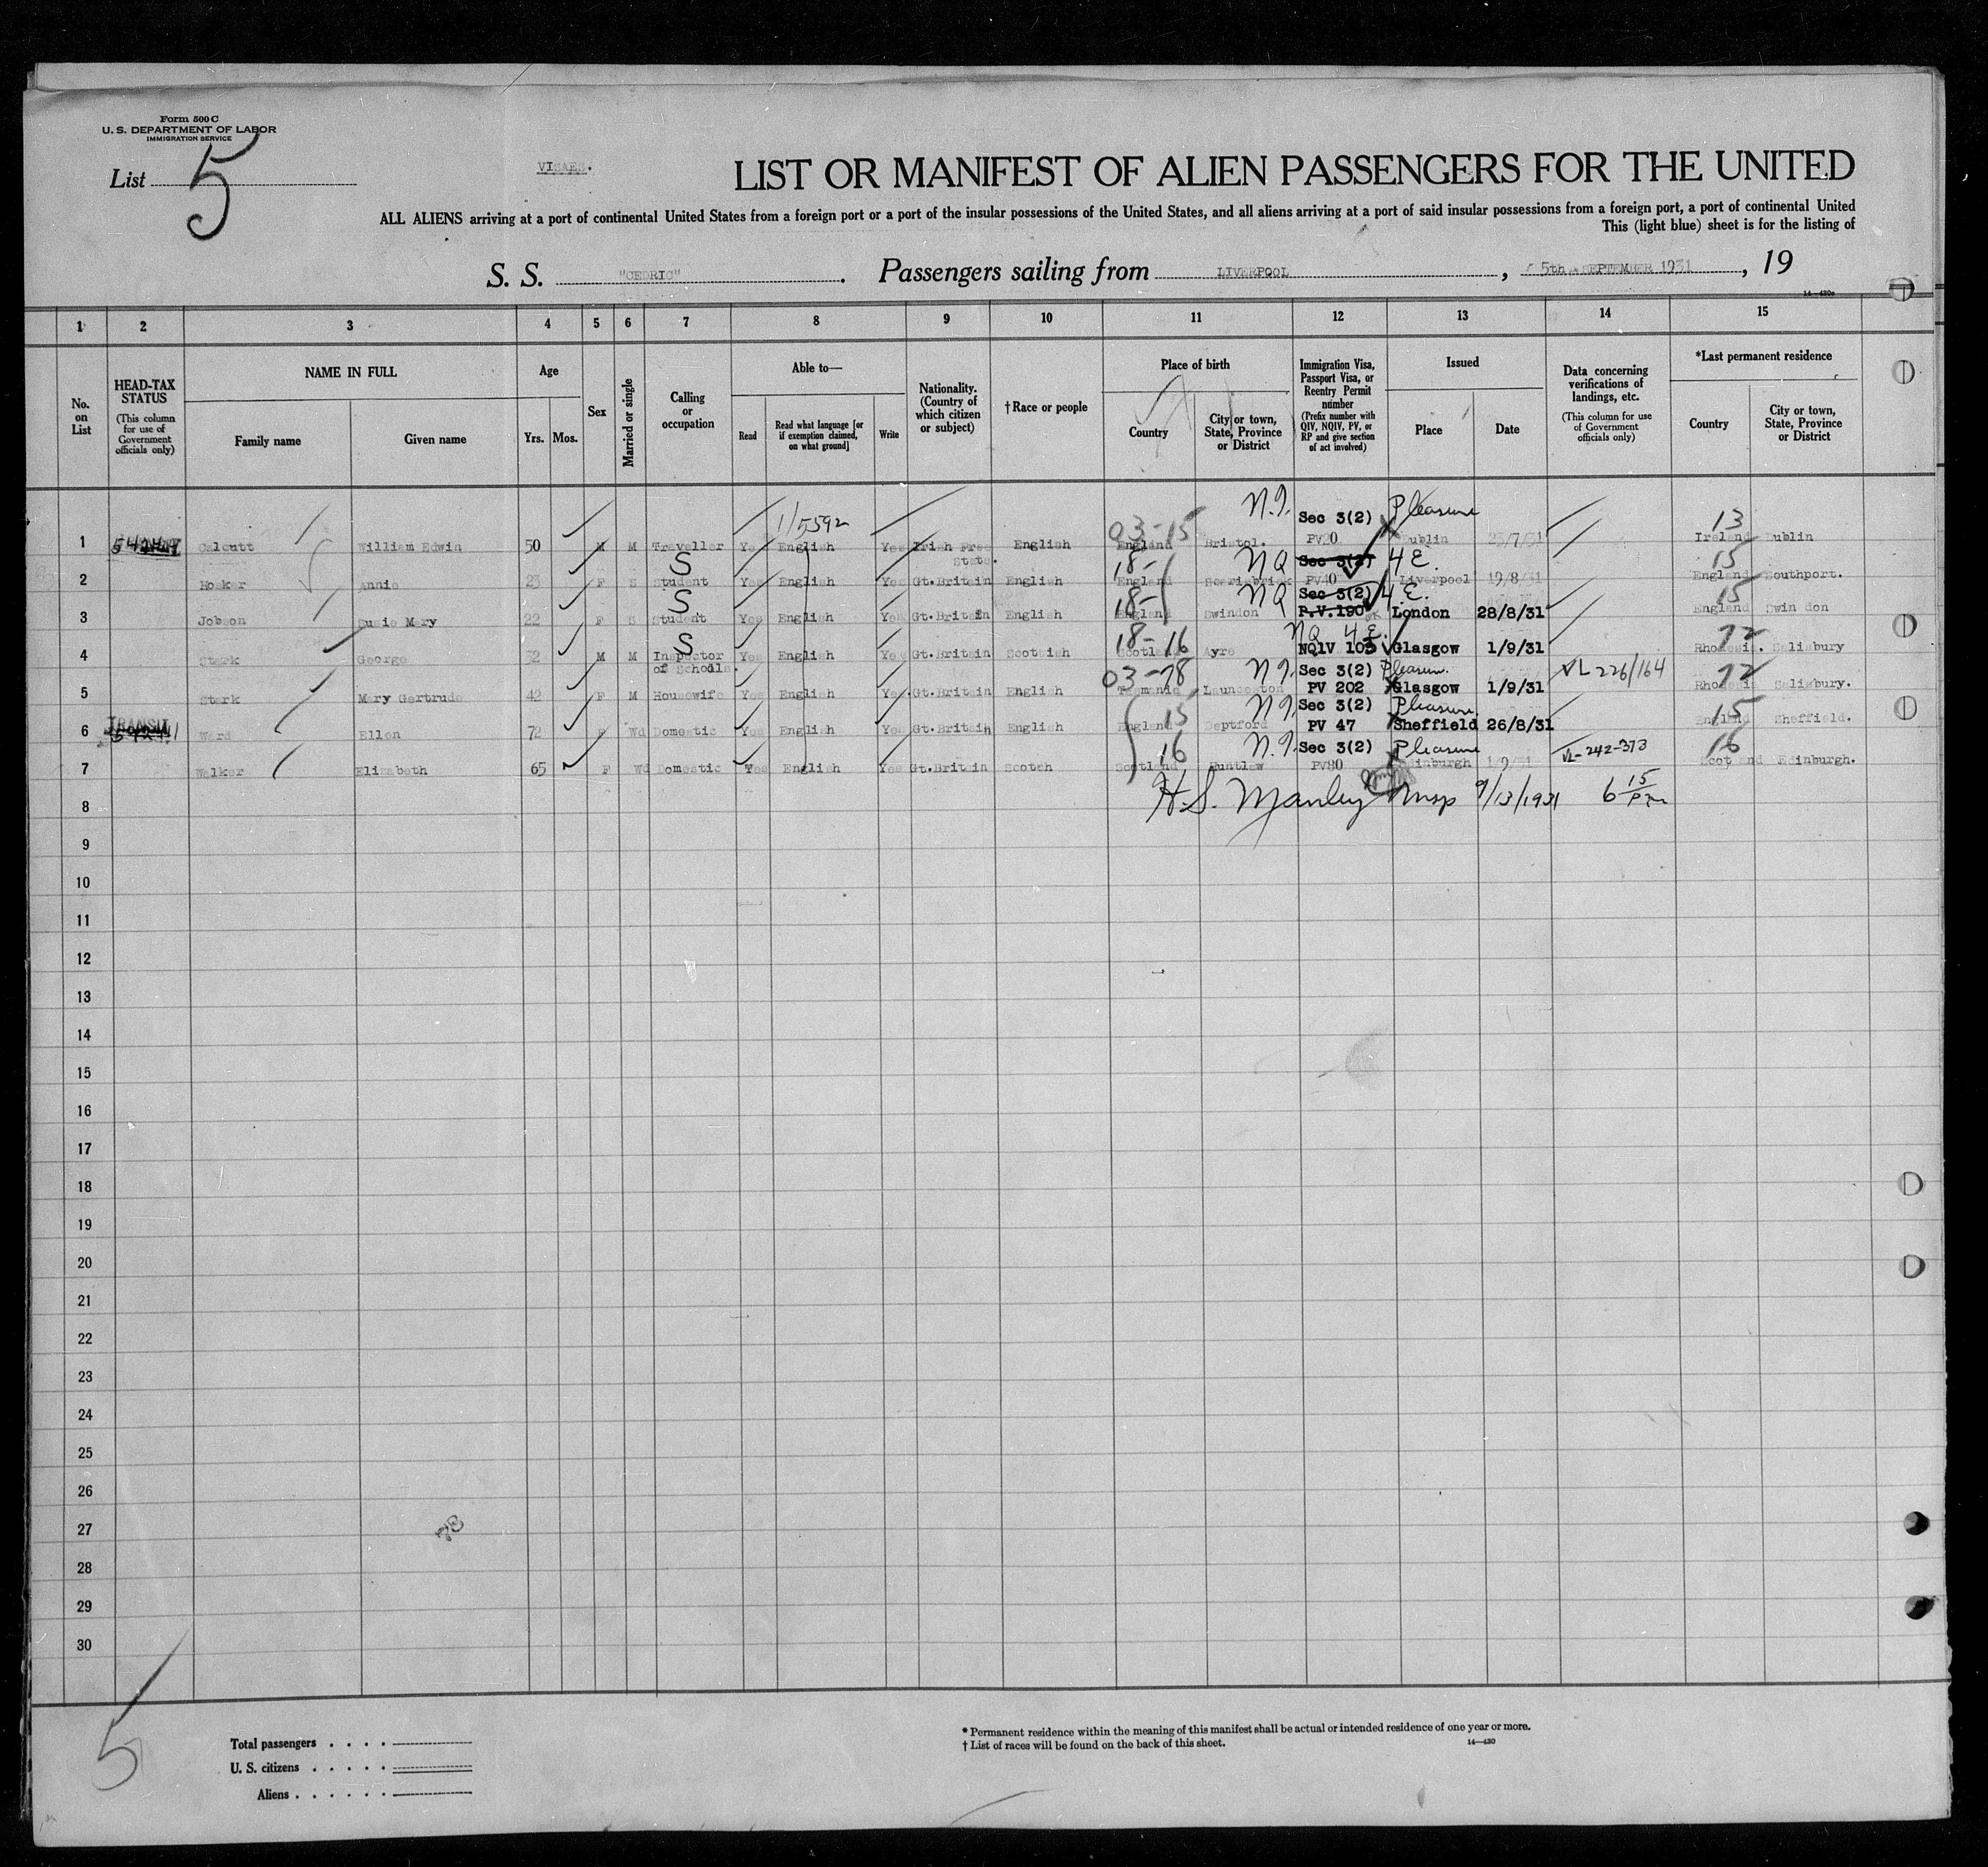 Form 500 C
U. S. DEPARTMENT OF LABOR
IMMIGRATION SERVICE
List 5
VISAES.
LIST OR MANIFEST OF ALIEN PASSENGERS FOR THE UNITED
ALL ALIENS arriving at a port of continental United States from a foreign port or a port of the insular possessions of the United States, and all aliens arriving at a port of said insular possessions from a foreign port, a port of continental United
This (light blue) sheet is for the listing of
S. S. "CEDRIC". Passengers sailing from LIVERPOOL, 5th SEPTEMBER 1931, 19
14—430c
1 2 3 4 5 6 7 8 9 10 11 12 13 14 15
No. on List
HEAD-TAX STATUS (This column for use of Government officials only)
NAME IN FULL
Family name Given name
Age
Yrs. Mos.
Sex
Married or single
Calling or occupation
Able to—
Read Read what language [or if exemption claimed, on what ground] Write
Nationality. (Country of which citizen or subject)
†Race or people
Place of birth
Country City or town, State, Province or District
Immigration Visa, Passport Visa, or Reentry Permit number (Prefix number with QIV, NQIV, PV, or RP and give section of act involved)
Issued
Place Date
Data concerning verifications of landings, etc. (This column for use of Government officials only)
*Last permanent residence
Country City or town, State, Province or District
1/5592 03-15 N.I. Sec 3(2) Pleasure 13
1 Calcutt William Edwin 50 M M Traveller Yes English Yes Irish Free State. English England Bristol. PV20 Dublin 23/7/31 Ireland Dublin
S 18- NQ Sec 3(2) 4E. 15
2 Hosker Annie 23 F S Student Yes English Yes Gt.Britain English England Scarisbrick PV40 Liverpool 19/8/31 England Southport.
S 18- NQ Sec 3(2) 4E. 15
3 Jobson Susie Mary 22 F S Student Yes English Yes Gt.Britain English England Swindon P.V.190 London 28/8/31 England Swin don
S 18-16 NQ 4E. 72
4 Stark George 52 M M Inspector of Schools. Yes English Yes Gt.Britain Scotsish Scotland Ayre NQIV 103 Glasgow 1/9/31 Rhodesia. Salisbury
03-78 N.I. Sec 3(2) Pleasure. VL 226/164 72
5 Stark Mary Gertrude 42 F M Housewife Yes English Yes Gt.Britain English Tasmania Launceston PV 202 Glasgow 1/9/31 Rhodesia Salisbury.
TRANSIT 15 N.I. Sec 3(2) Pleasure 15
6 Ward Ellen 72 F Wd Domestic Yes English Yes Gt.Britain English England Deptford PV 47 Sheffield 26/8/31 England Sheffield.
16 N.I. Sec 3(2) Pleasure VL-242-373 16
7 Walker Elizabeth 65 F Wd Domestic Yes English Yes Gt.Britain Scotch Scotland Huntlaw PV80 Edinburgh 1/9/31 Scotland Edinburgh.
8 H.S. Manley Insp 9/13/1931 6 15 Pm
9
10
11
12
13
14
15
16
17
18
19
20
21
22
23
24
25
26
27
28
29
30
5
Total passengers . . . .
U. S. citizens . . . . .
Aliens . . . . . .
* Permanent residence within the meaning of this manifest shall be actual or intended residence of one year or more.
† List of races will be found on the back of this sheet.
14—430